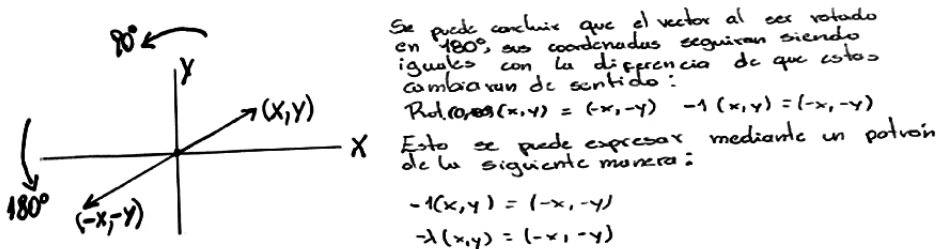 90°
Y
(x,y)
X
180°
(-x,-y)
Se puede concluir que el vector al ser rotado
en 180°, sus coordenadas seguiran siendo
iguales con la diferencia de que estas
cambiaran de sentido:
Rot.(0,0)(x,y) = (-x,-y) -1 (x,y) = (-x,-y)
Esto se puede expresar mediante un patrón
de la siguiente manera:
-1(x,y) = (-x,-y)
-λ(x,y) = (-x,-y)